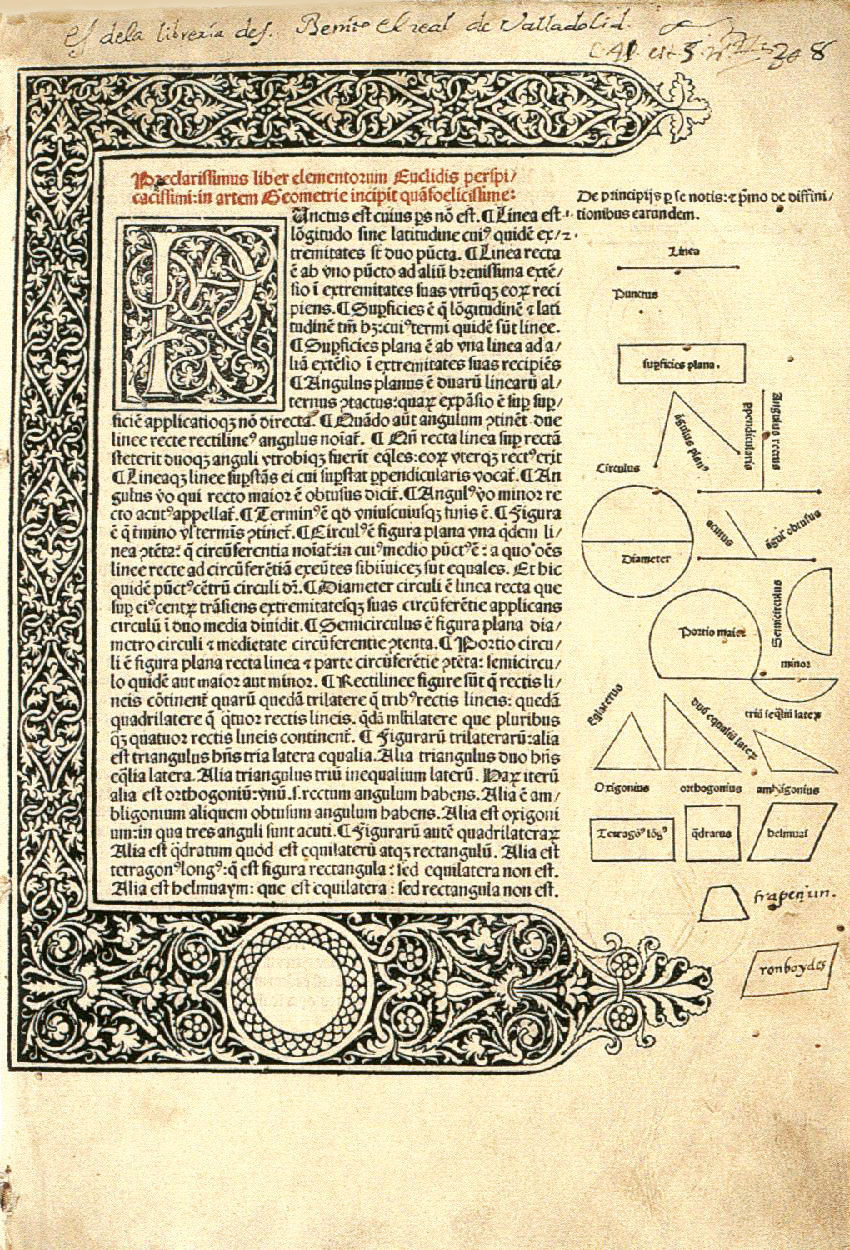 es dela libreria de s. Benito el real de Valladolid.
Preclarissimus liber elementorum Euclidis perspi/
cacissimi: in artem Geometrie incipit quãfoelicissime:
PUnctus est cuius ps nõ est. ¶ Linea est
lõgitudo sine latitudine cuiꝰ quidẽ ex/
tremitates sũt duo pũcta. ¶ Linea recta
ẽ ab vno pũcto ad aliũ breuissima extẽ/
sio ĩ extremitates suas vtrũqꝫ eoꝝ reci
piens. ¶ Supficies ẽ q̃ lõgitudinẽ ⁊ lati
tudinẽ tm̃ hꝫ: cuiꝰ termi quidẽ sũt linee.
¶ Supficies plana ẽ ab vna linea ad a/
liã extẽsio ĩ extremitates suas recipiẽs
¶ Angulus planus ẽ duarũ linearũ al/
ternus ꝯtactus: quaꝝ expãsio ẽ sup sup/
ficiẽ applicatioqꝫ nõ directa. ¶ Quãdo aũt angulum ꝯtinẽt due
linee recte rectilineꝰ angulus noiat᷑. ¶ Qñ recta linea sup rectã
steterit duoqꝫ anguli vtrobiqꝫ fuerit eq̃les: eoꝝ vterqꝫ rectꝰ erit
¶ Lineaqꝫ linee supstãs ei cui supstat ppendicularis vocat᷑. ¶ An
gulus vo qui recto maior ẽ obtusus dicit᷑. ¶ Angulꝰ vo minor re
cto acutꝰ appellat᷑. ¶ Terminꝰ ẽ qd vniuscuiusqꝫ finis ẽ. ¶ Figura
ẽ q̃ tmino vl termis ꝯtinet᷑. ¶ Circulꝰ ẽ figura plana vna qdem li/
nea ꝯtẽta: q̃ circũferentia noiat᷑: in cuiꝰ medio pũctꝰ ẽ: a quo oẽs
linee recte ad circũferẽtiã exeũtes sibiinuicẽ sũt equales. Et hic
quidẽ pũctꝰ cẽtrũ circuli dr̃. ¶ Diameter circuli ẽ linea recta que
sup eiꝰ centꝝ trãsiens extremitatesqꝫ suas circũferẽtie applicans
circulũ ĩ duo media diuidit. ¶ Semicirculus ẽ figura plana dia/
metro circuli ⁊ medietate circũferentie ꝯtenta. ¶ Portio circu/
li ẽ figura plana recta linea ⁊ parte circũferẽtie ꝯtẽta: semicircu/
lo quidẽ aut maior aut minor. ¶ Rectilinee figure sũt q̃ rectis li/
neis cõtinent᷑ quarũ quedã trilatere q̃ tribꝰ rectis lineis: quedã
quadrilatere q̃ qtuor rectis lineis. qdã mltilatere que pluribus
qꝫ quatuor rectis lineis continent᷑. ¶ Figurarũ trilaterarũ: alia
est triangulus hñs tria latera equalia. Alia triangulus duo hñs
eq̃lia latera. Alia triangulus triũ inequalium laterũ. Haꝝ iterũ
alia est orthogoniũ: vnũ. s. rectum angulum habens. Alia ẽ am/
bligonium aliquem obtusum angulum habens. Alia est oxigoni
um: in qua tres anguli sunt acuti. ¶ Figurarũ autẽ quadrilateraꝝ
Alia est q̃dratum quod est equilaterũ atqꝫ rectangulũ. Alia est
tetragonꝰ longꝰ: q̃ est figura rectangula: sed equilatera non est.
Alia est helmuaym: que est equilatera: sed rectangula non est.
De principijs p se notis: ⁊ pmo de diffini/
tionibus earundem.
Linea
Punctus
supficies plana.
ãgulus planꝰ
ppendicularis
angulus rectus
Circulus
Diameter
acutus
ãgulꝰ obtusus
Portio maior
Semicirculus
minor
Eqlaterus
duoꝝ equaliũ lateꝝ
triũ ineq̃liũ lateꝝ
Oxigonius
orthogonius
ambligonius
Tetragonꝰ lõgꝰ
q̃dratus
helmuai
ronboydes